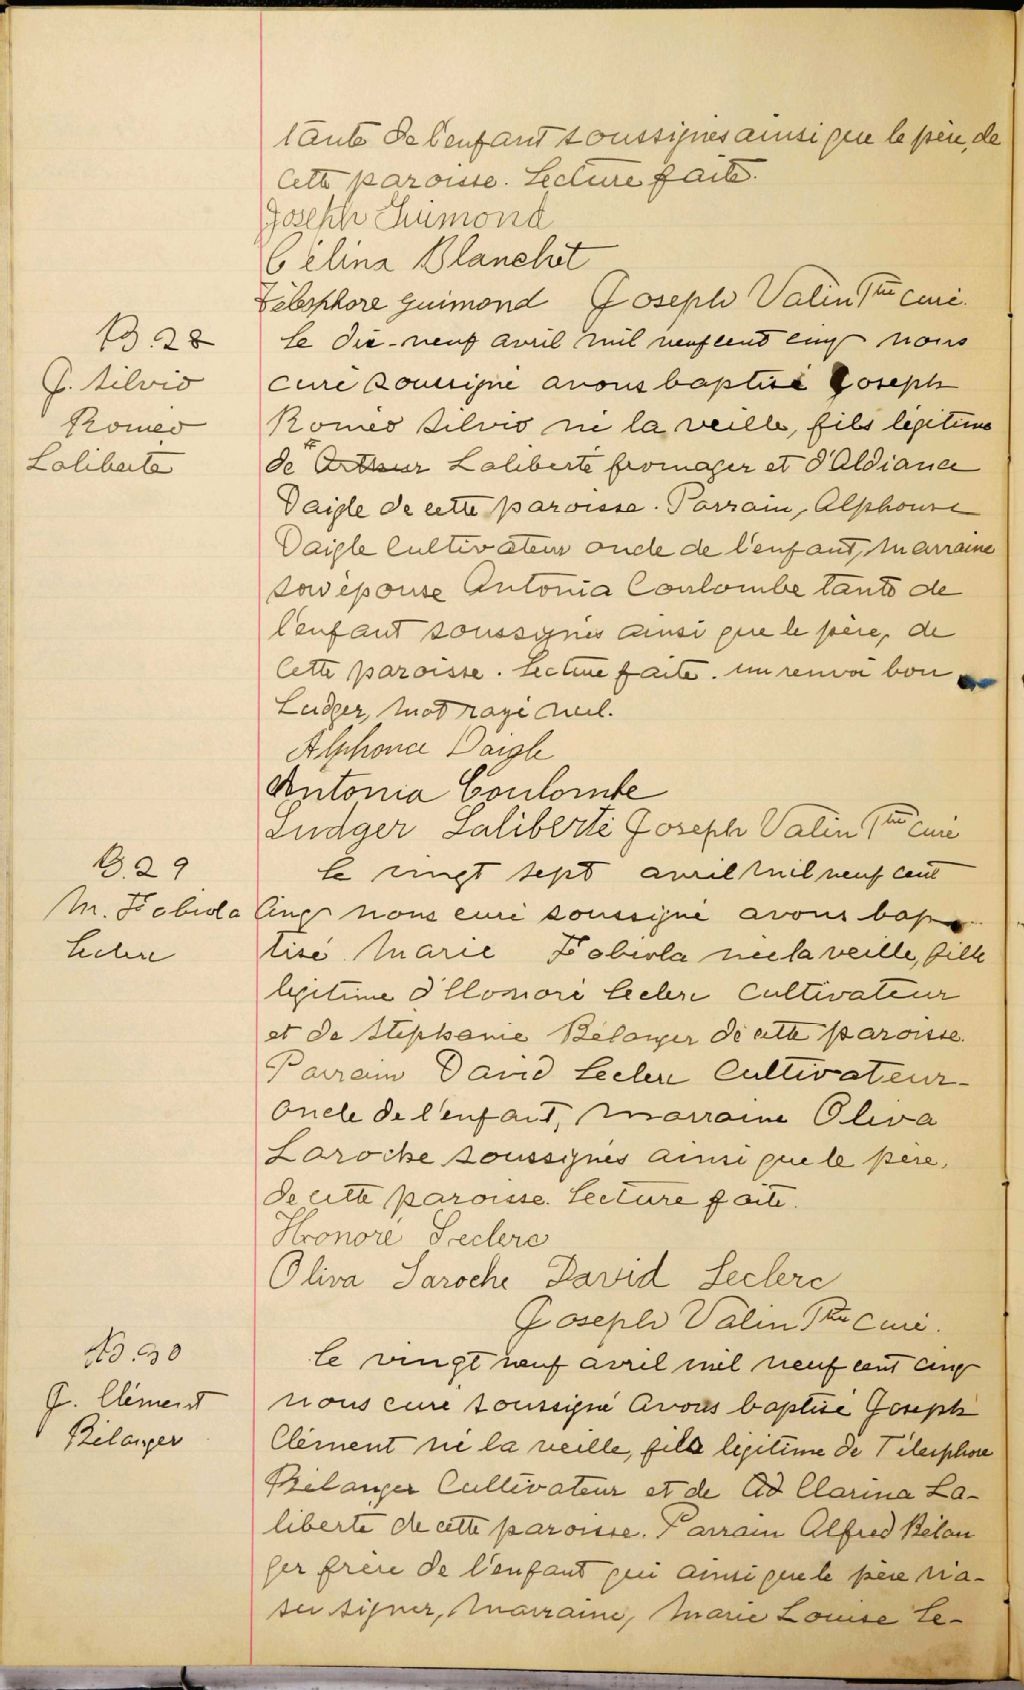 tante de l'enfant soussignés ainsi que le père, de
cette paroisse. Lecture faite.
Joseph Guimond
Célina Blanchet
Télesphore Guimond Joseph Valin Ptre curé.
B. 28
J. Silvio
Roméo
Laliberté
Le dix-neuf avril mil neuf cent cinq nous
curé soussigné avons baptisé Joseph
Roméo Silvio né la veille, fils légitime
de # Arthur Laliberté fromager et d'Aldiana
Daigle de cette paroisse. Parrain, Alphonse
Daigle Cultivateur oncle de l'enfant, marraine
son épouse Antonia Coulombe tante de
l'enfant soussignés ainsi que le père, de
cette paroisse. Lecture faite. un renvoi bon
Ludger, mot rayé nul.
Alphonce Daigle
Antonia Coulombe
Ludger Laliberté Joseph Valin Ptre curé
B. 29
M. Fabiola
Leclerc
Le vingt sept avril mil neuf cent
cinq nous curé soussigné avons bap
tisé Marie Fabiola née la veille, fille
légitime d'Honoré Leclerc Cultivateur
et de Stéphanie Bélanger de cette paroisse.
Parrain David Leclerc Cultivateur-
oncle de l'enfant, marraine Oliva
Laroche soussignés ainsi que le père,
de cette paroisse. Lecture faite.
Honoré Leclerc
Oliva Laroche David Leclerc
Joseph Valin Ptre curé.
B. 30
J. Clément
Bélanger
Le vingt neuf avril mil neuf cent cinq
nous curé soussigné avons baptisé Joseph
Clément né la veille, fils légitime de Télesphore
Bélanger Cultivateur et de Ad Clarina La-
liberté de cette paroisse. Parrain Alfred Bélan
ger frère de l'enfant qui ainsi que le père n'a-
su signer, marraine, Marie Louise Le-